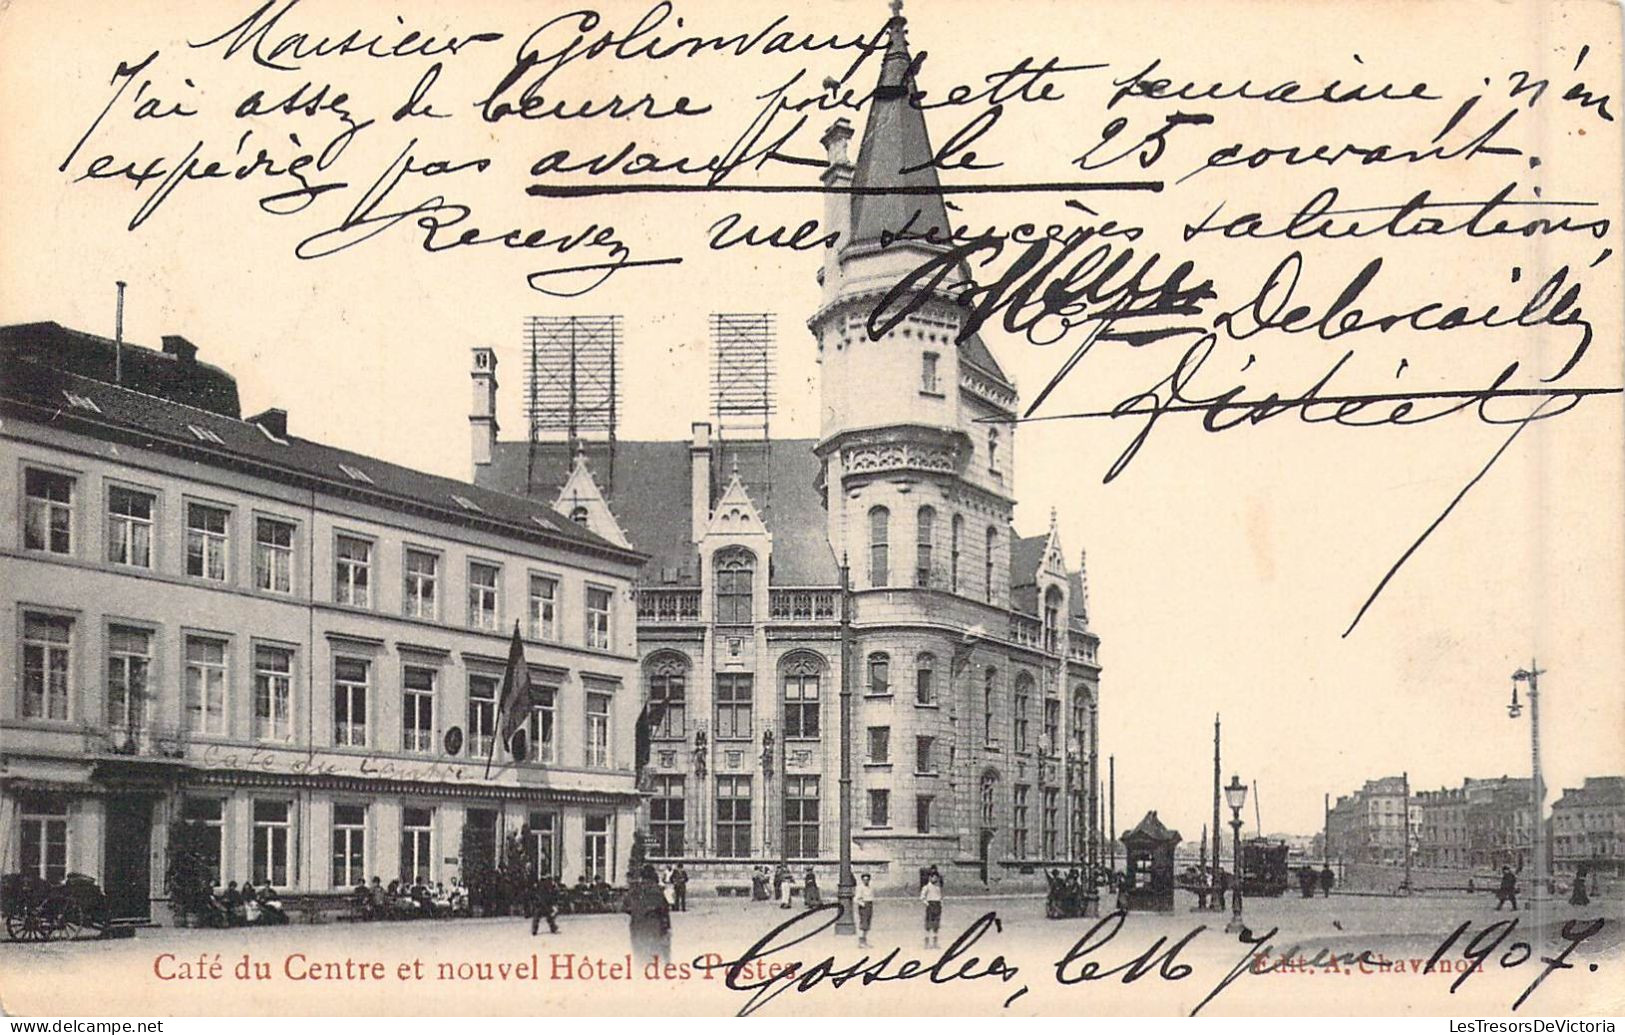 Monsieur Golinvaux
J'ai assez de beurre pour cette semaine ; n'en
expédiez pas avant le 25 courant.
Recevez mes sincères salutations,
Debescailly
Café du Centre
Gosselies, le 16 juin 1907.
Café du Centre et nouvel Hôtel des Postes.
Edit. A. Chavanon
LesTresorsDeVictoria